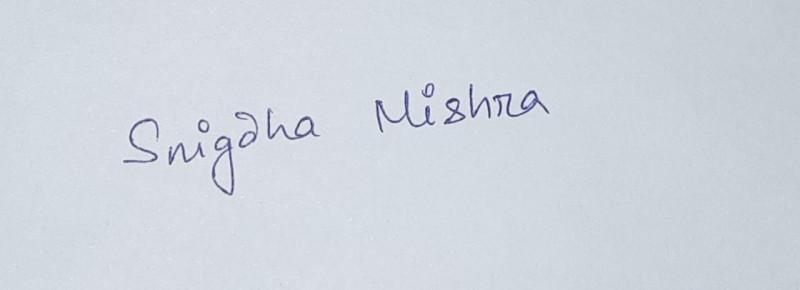 Snigdha Mishra